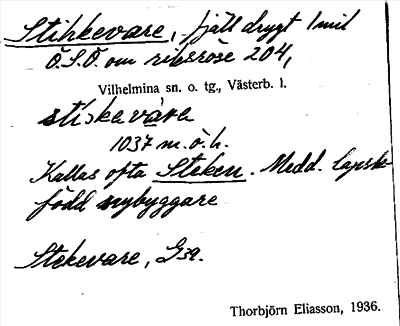 Stihkevare, fjäll drygt 1 mil
Ö.S.Ö. om riksröse 204,
Vilhelmina sn. o. tg., Västerb. l.
stiskevàra
1037 m.ö.h.
Kallas ofta Steken. Medd. lapsk-
född nybyggare
Stekevare, G39.
Thorbjörn Eliasson, 1936.